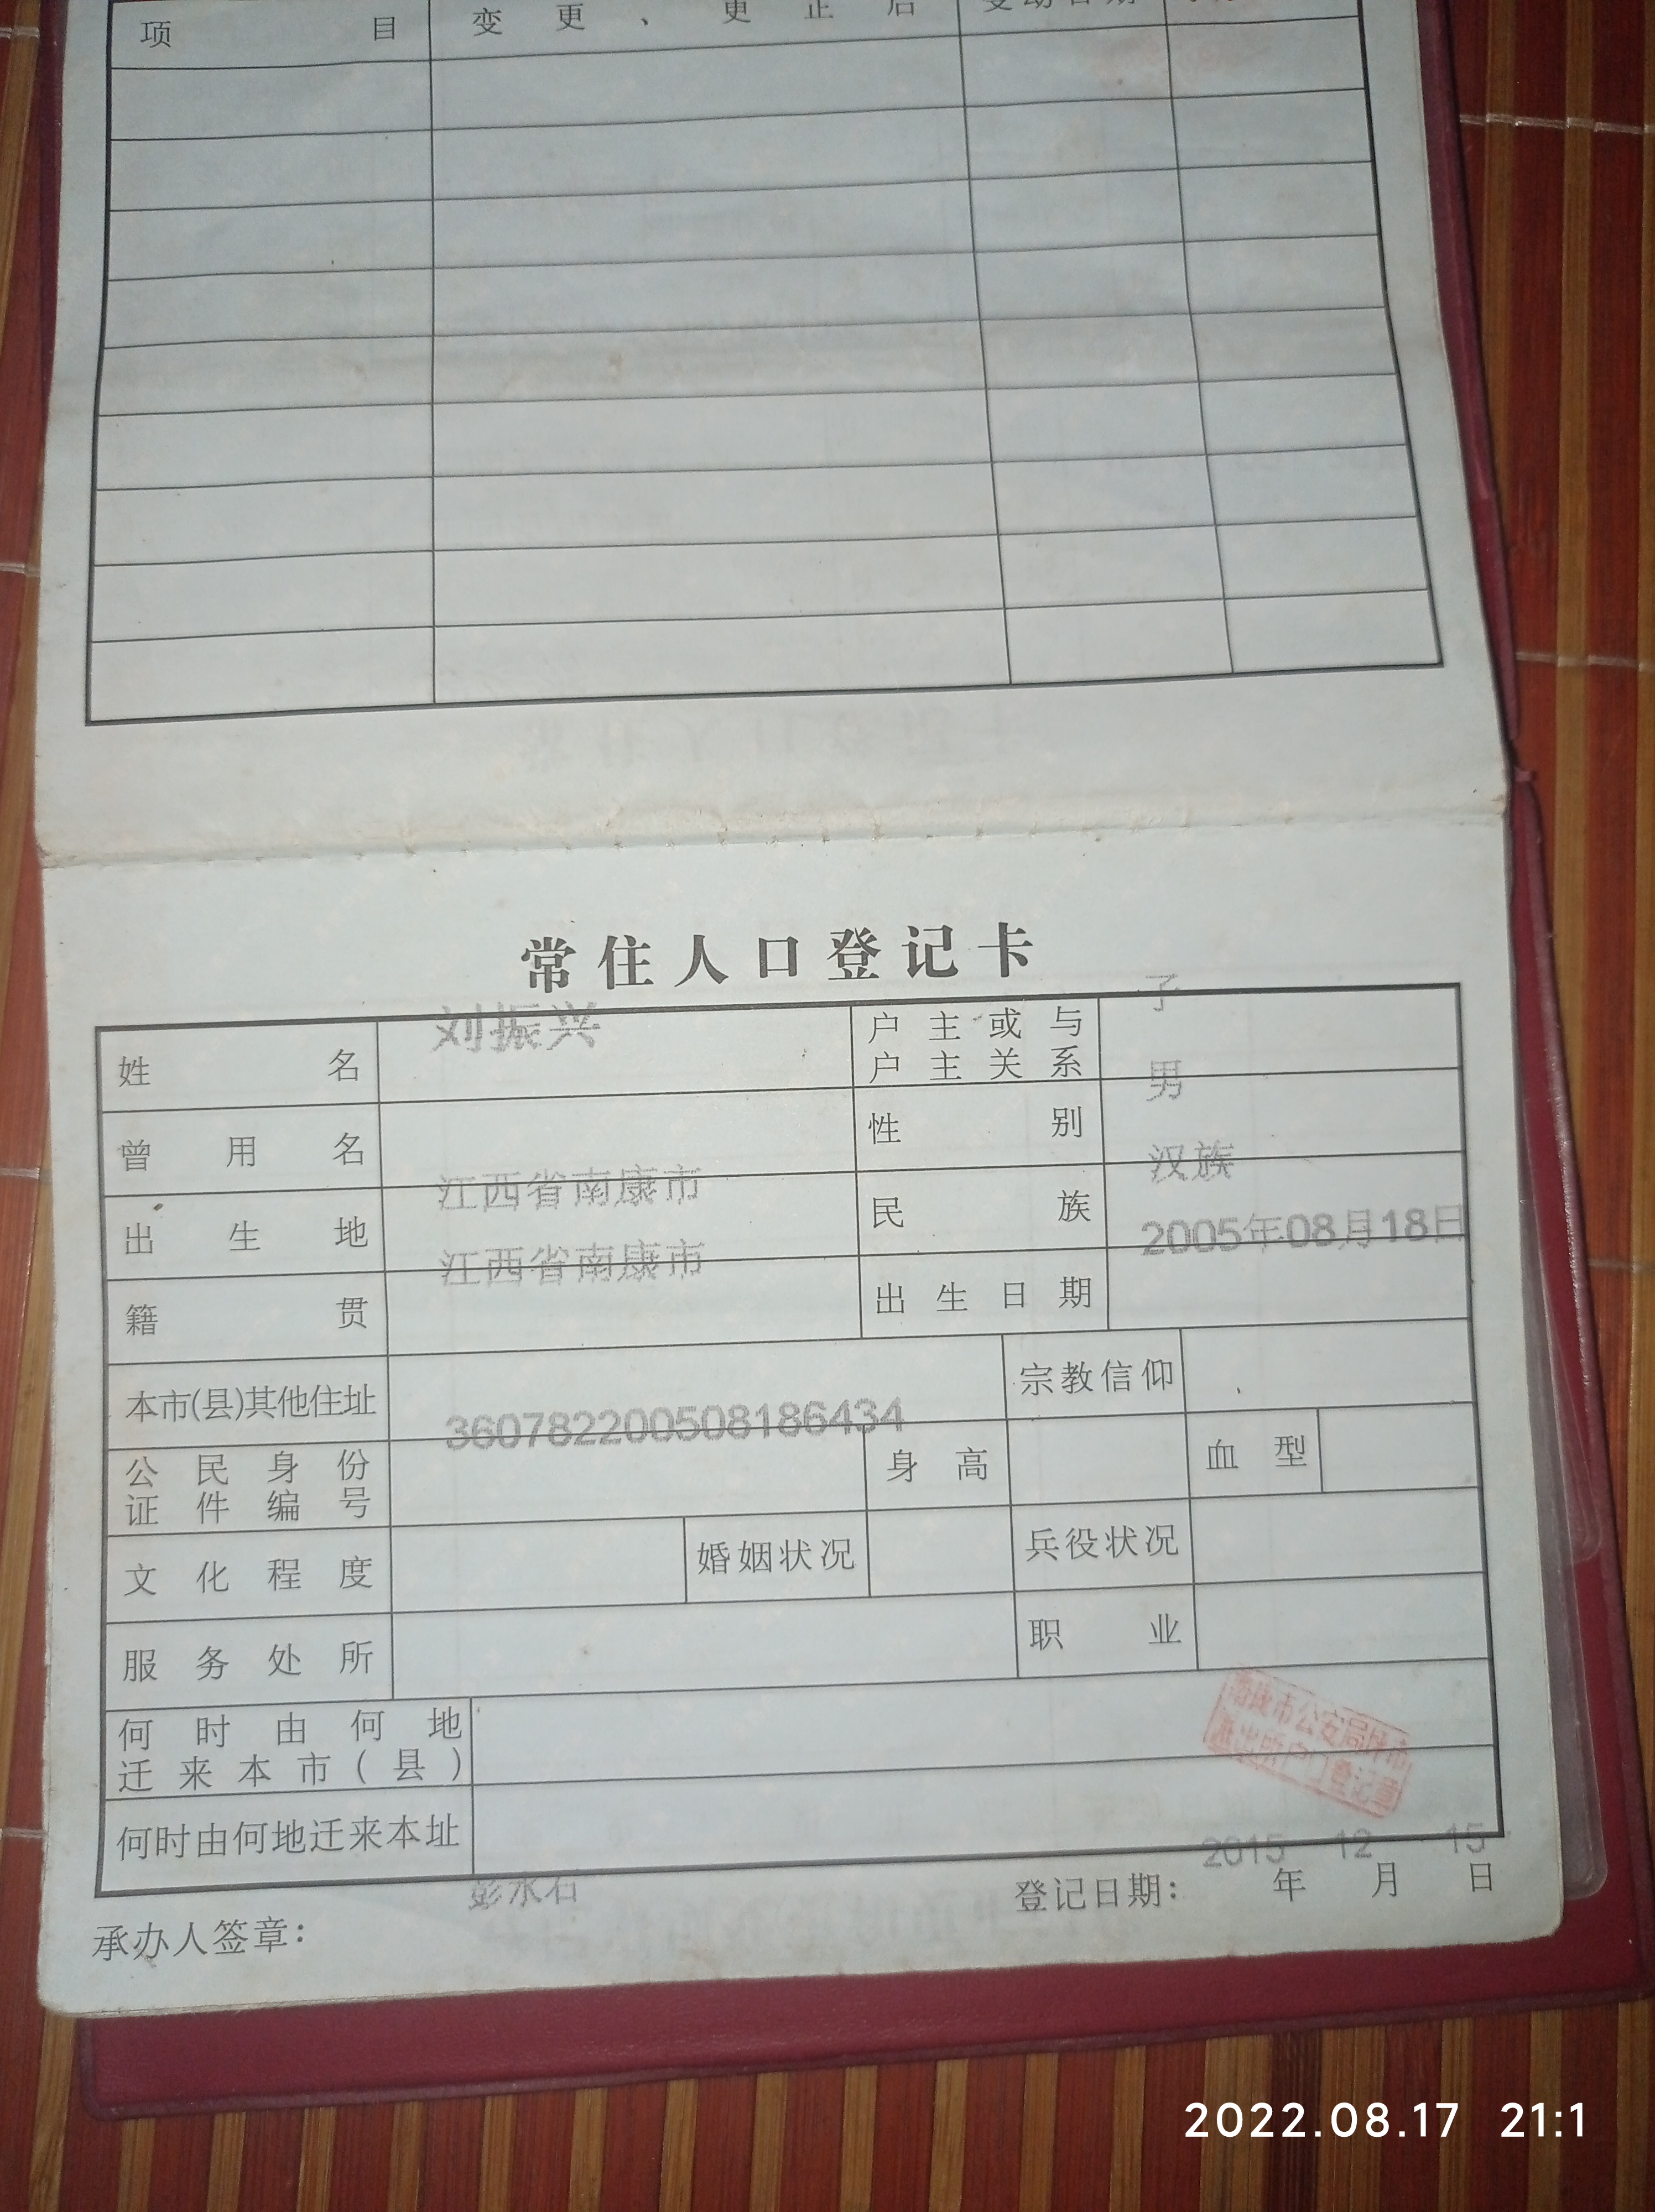 项目 变更、更正后 变动日期
常住人口登记卡
姓名 刘振兴 户主或与户主关系 子
曾用名 性别 男
出生地 江西省南康市 民族 汉族
籍贯 江西省南康市 出生日期 2005年08月18日
本市(县)其他住址 宗教信仰
公民身份证件编号 360782200508186434 身高 血型
文化程度 婚姻状况 兵役状况
服务处所 职业
何时由何地迁来本市(县)
何时由何地迁来本址
康市公安局
出所户口登记章
承办人签章: 彭水石 登记日期: 2015年12月15日
2022.08.17 21:1